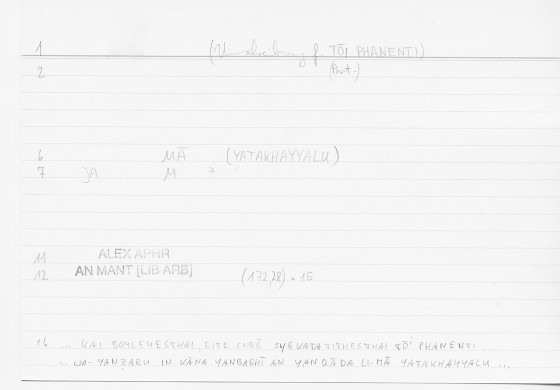 1 (Umschreibung f. TŌI PHANENTI)
2 (Part.)
6 MĀ (YATAKHAYYALU)
7 JA M 2
11 ALEX APHR
12 AN MANT [LIB ARB] (172,28) = 15
16 ... KAI BOYLEUESTHAI, EITE CHRĒ SYGKATATITHESTHAI TŌI PHANENTI ...
... WA-YANẒARU IN KĀNA YANBAGHĪ AN YANQĀDA LI-MĀ YATAKHAYYALU ...